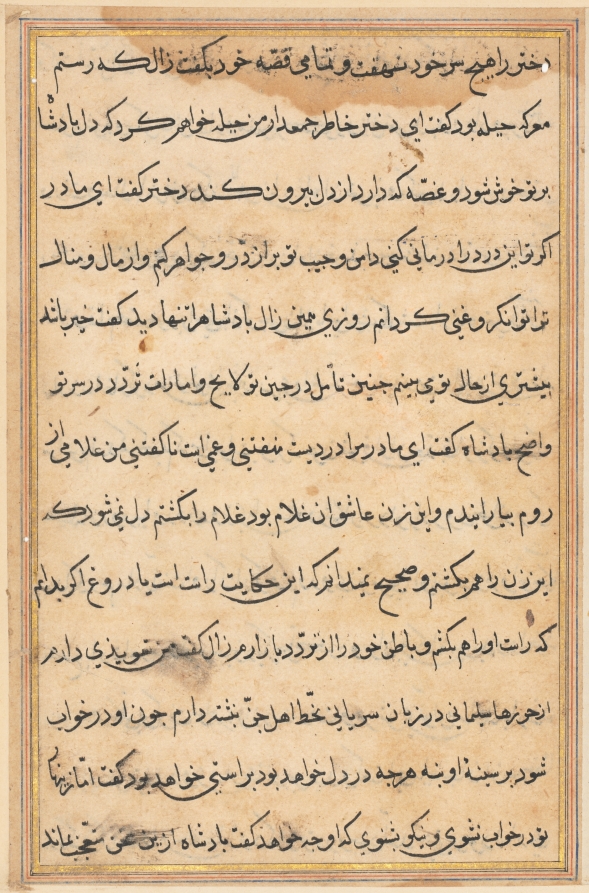 دختر را هیچ سر خود ننهفت و تمامی قصّه خود بگفت زال که رستم
معرکه حیله بود گفت ای دختر خاطر جمعدار من حیله خواهم کرد که دل پادشا
بر تو خوش شود و غصّه که دارد از دل بیرون کند دختر گفت ای مادر
اکر تو این درد را درمانی کنی دامن و جیب تو پر از در و جواهر کنم و از مال و منال
ترا توانکر و غنی کردانم روزی همین زال پادشاه را تنها دید گفت خیر باشد
بیشتری از حال تو می بینم چنین تأمل در جبین تو لایح و امارات تردّد در سر تو
واضح پادشاه گفت ای مادر مرا دردیست نهفتنی و غمی است ناگفتنی من غلامی از
روم بیارانیدم و این زن عاشق ان غلام بود غلام را بکشتم دل نمی شود که
این زن را هم بکشم و صحیح نمیدانم که این حکایت راست است یا دروغ اکر بدانم
که راست او را هم بکشم و باطن خود را از تردّد باز ارم زال گفت من تعویذی دارم
از حرزهاء سلیمانی در زبان سریانی بخّط اهل جنّ نبشته دارم چون او در خواب
شود بر سینهٔ او بنه هرچه در دل خواهد بود براستی خواهد بود گفت امّا زینهار
تو در خواب نشوی و نیکو بشنوی که او چه خواهد گفت پادشاه ازین سخن متعجّب بماند